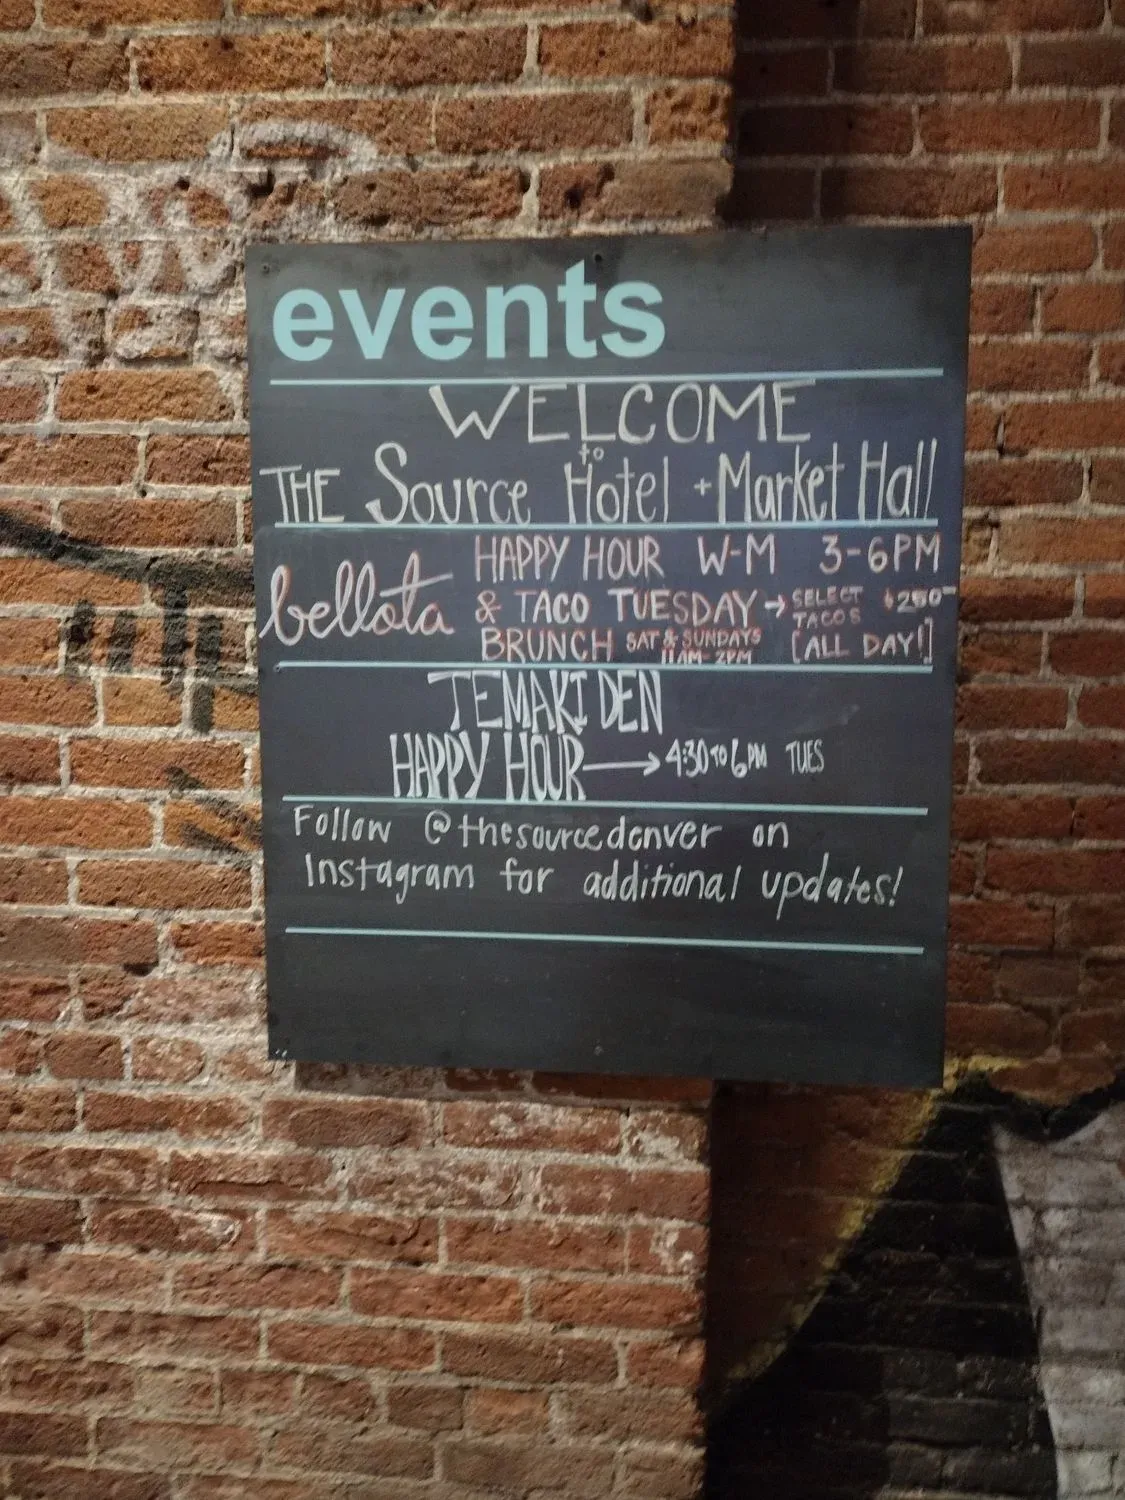 events
WELCOME
to
THE Source Hotel + Market Hall
bellota
HAPPY HOUR W-M 3-6PM
& TACO TUESDAY → SELECT TACOS $250
BRUNCH SAT & SUNDAYS 11AM-2PM [ALL DAY!]
TEMAKI DEN
HAPPY HOUR → 4:30 TO 6PM TUES
Follow @thesourcedenver on
Instagram for additional updates!